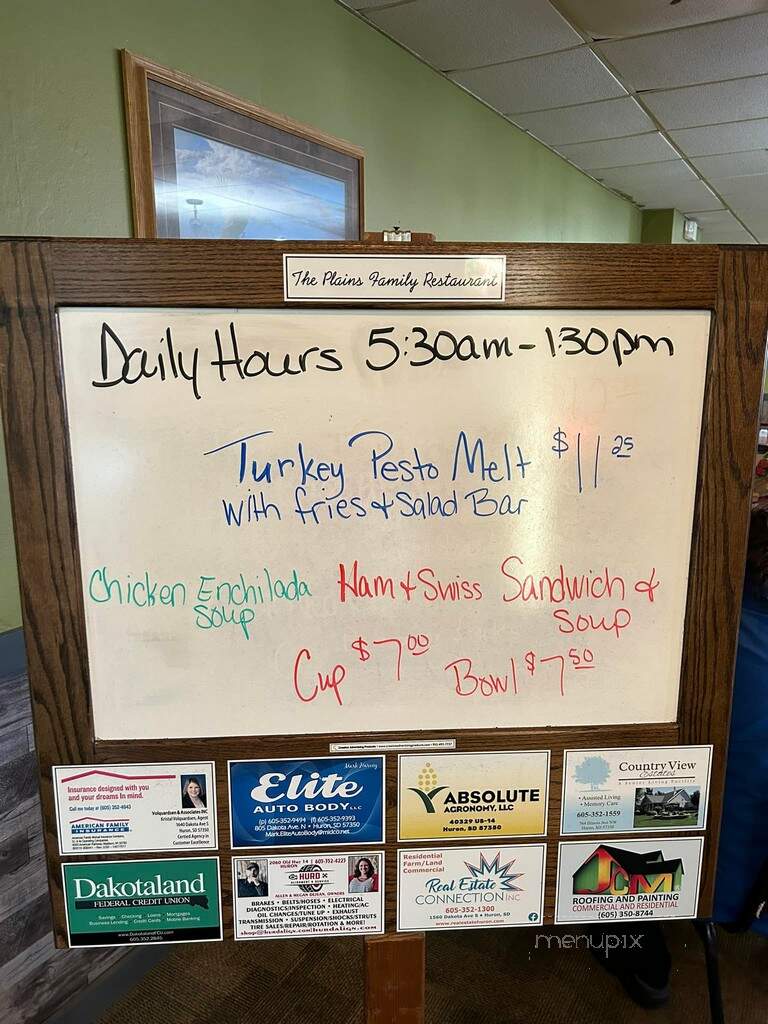 The Plains Family Restaurant
Daily Hours 5:30am - 1:30pm
Turkey Pesto Melt $11 25
with fries & Salad Bar
Chicken Enchilada
Soup
Ham & Swiss Sandwich &
Soup
Cup $7 00
Bowl $7 50
Insurance designed with you
and your dreams in mind.
Call me today at (605) 352-4943
AMERICAN FAMILY
INSURANCE
Volquardsen & Associates INC
Kristal Volquardsen, Agent
1640 Dakota Ave S
Huron, SD 57350
Certified Agency in
Customer Excellence
Mark Harvey
Elite
AUTO BODY LLC
(p) 605-352-9494 (f) 605-352-9393
805 Dakota Ave. N • Huron, SD 57350
Mark.EliteAutoBody@midco.net
ABSOLUTE
AGRONOMY, LLC
40329 US-14
Huron, SD 57350
Country View
Estates
A Senior Living Facility
• Assisted Living
• Memory Care
605-352-1559
Dakotaland
FEDERAL CREDIT UNION
Savings Checking Loans Mortgages
Business Lending Credit Cards Mobile Banking
www.DakotalandFCU.com
605.352.2845
2060 Old Hwy 14 | 605-352-6223
HURON
HURD
ALIGNMENT & SERVICE
ALLEN & MEGAN DEJEAN, OWNERS
BRAKES • BELTS/HOSES • ELECTRICAL
DIAGNOSTICS/INSPECTION • HEATING/AC
OIL CHANGES/TUNE UP • EXHAUST
TRANSMISSION • SUSPENSION/SHOCKS/STRUTS
TIRE SALES/REPAIR/ROTATION & MORE
shop@hurdalign.com/hurdalign.com
Residential
Farm/Land
Commercial
Real Estate
CONNECTION INC
605-352-1300
1560 Dakota Ave S • Huron, SD
www.realestatehuron.com
JCM
ROOFING AND PAINTING
COMMERCIAL AND RESIDENTIAL
(605) 350-8744
menupix